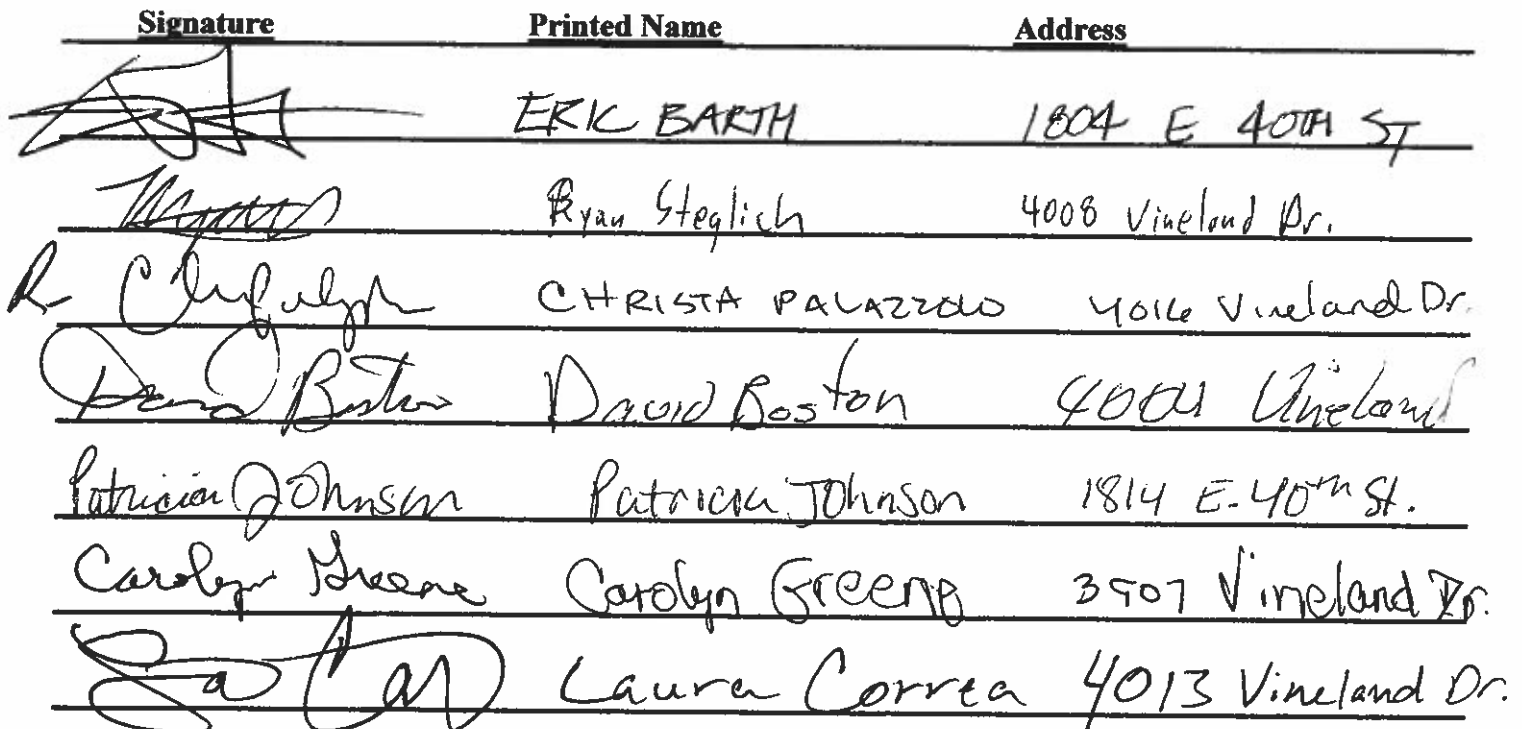 Signature Printed Name Address
ERIC BARTH 1804 E 40TH ST
Ryan Steglich 4008 Vineland Dr.
CHRISTA PALAZZOLO 4016 Vineland Dr.
David Boston David Boston 4004 Vineland
Patricia Johnson Patricia Johnson 1814 E. 40th St.
Carolyn Greene Carolyn Greene 3907 Vineland Dr.
Laura Correa 4013 Vineland Dr.